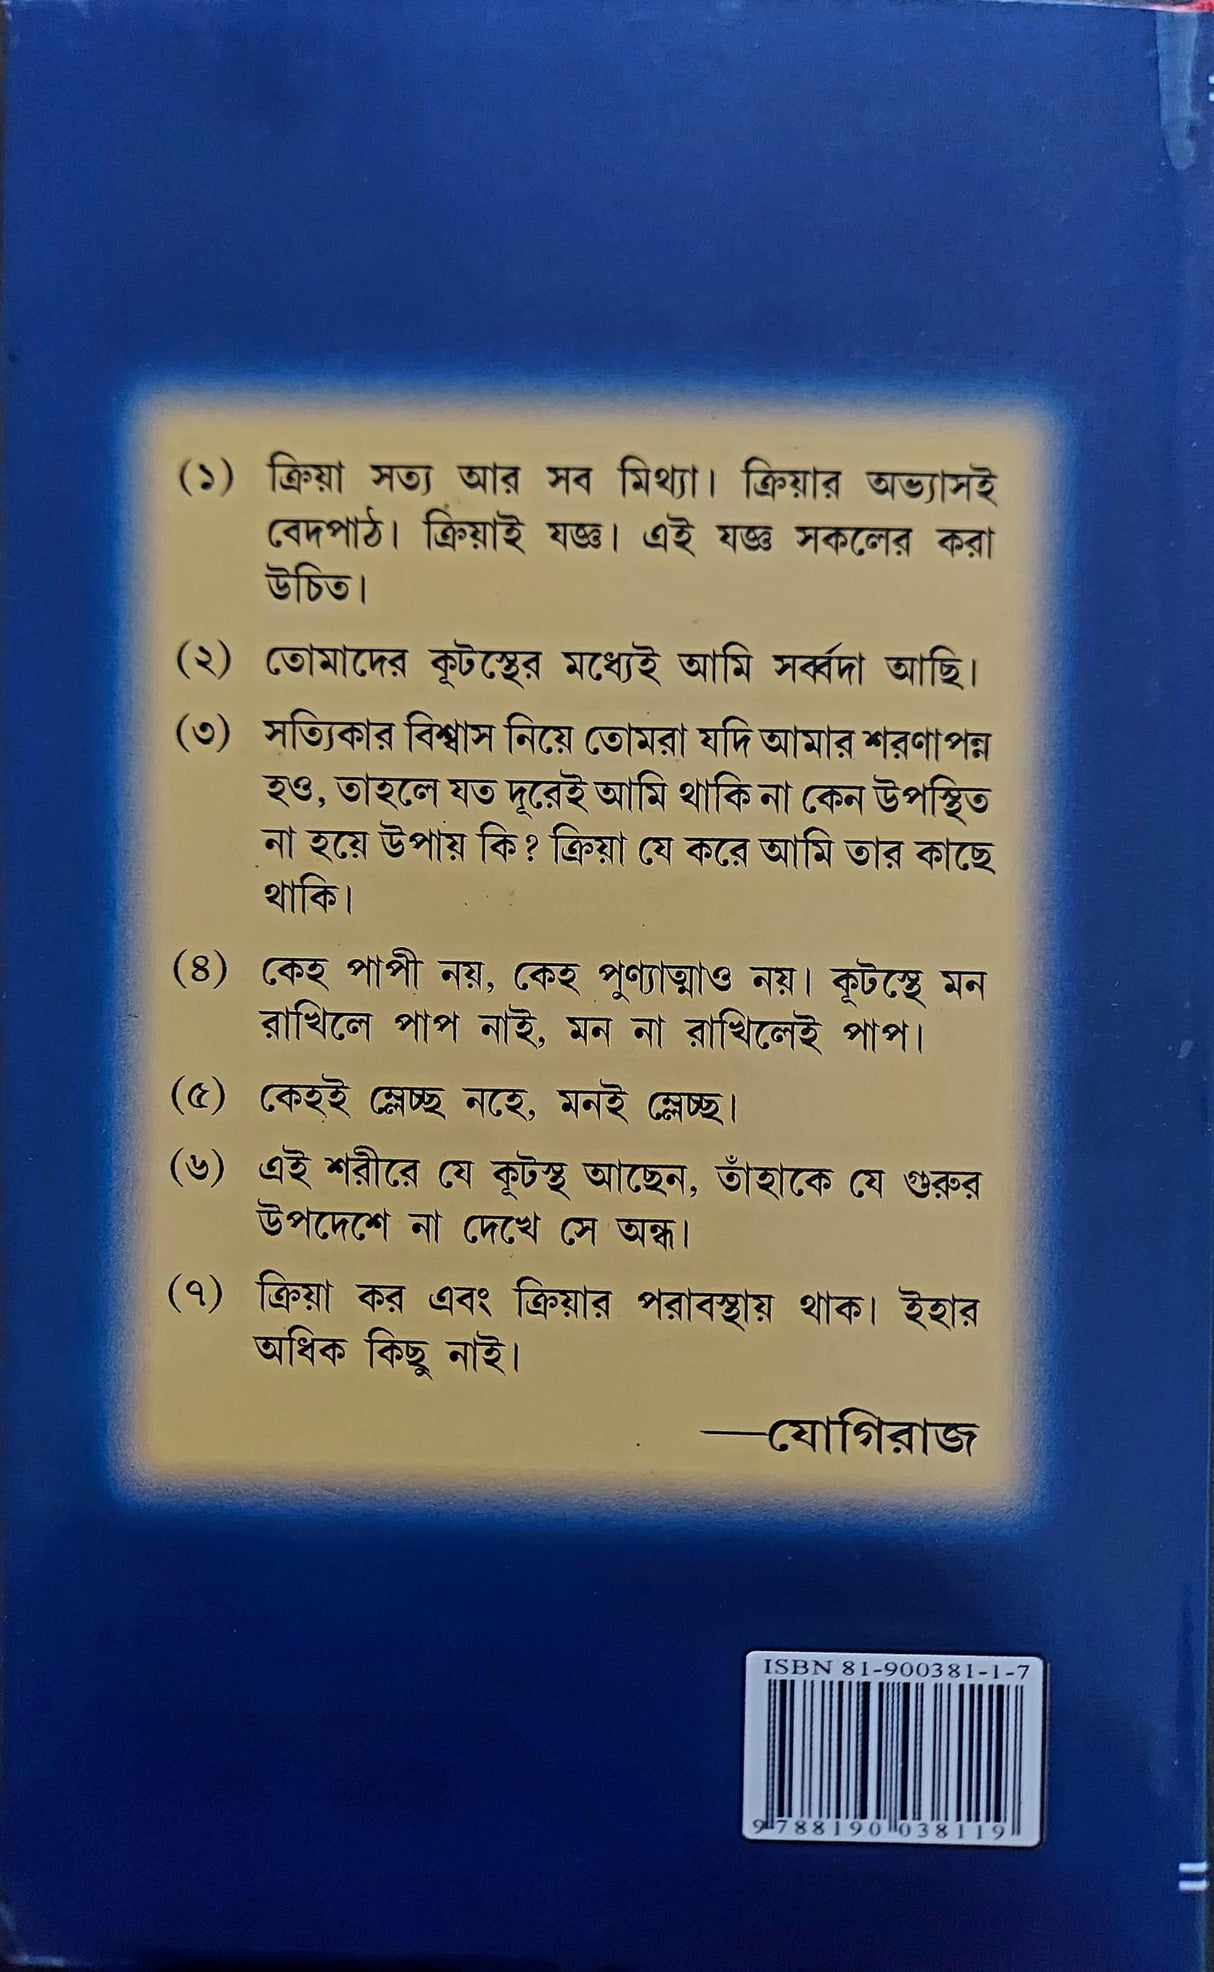 (১) ক্রিয়া সত্য আর সব মিথ্যা। ক্রিয়ার অভ্যাসই
বেদপাঠ। ক্রিয়াই যজ্ঞ। এই যজ্ঞ সকলের করা
উচিত।
(২) তোমাদের কূটস্থের মধ্যেই আমি সর্ব্বদা আছি।
(৩) সত্যিকার বিশ্বাস নিয়ে তোমরা যদি আমার শরণাপন্ন
হও, তাহলে যত দূরেই আমি থাকি না কেন উপস্থিত
না হয়ে উপায় কি? ক্রিয়া যে করে আমি তার কাছে
থাকি।
(৪) কেহ পাপী নয়, কেহ পুণ্যাত্মাও নয়। কূটস্থে মন
রাখিলে পাপ নাই, মন না রাখিলেই পাপ।
(৫) কেহই ম্লেচ্ছ নহে, মনই ম্লেচ্ছ।
(৬) এই শরীরে যে কূটস্থ আছেন, তাঁহাকে যে গুরুর
উপদেশে না দেখে সে অন্ধ।
(৭) ক্রিয়া কর এবং ক্রিয়ার পরাবস্থায় থাক। ইহার
অধিক কিছু নাই।
—যোগিরাজ
ISBN 81-900381-1-7
9 788190 038119